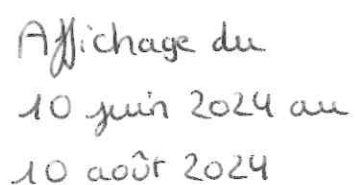 Affichage du
10 juin 2024 au
10 août 2024